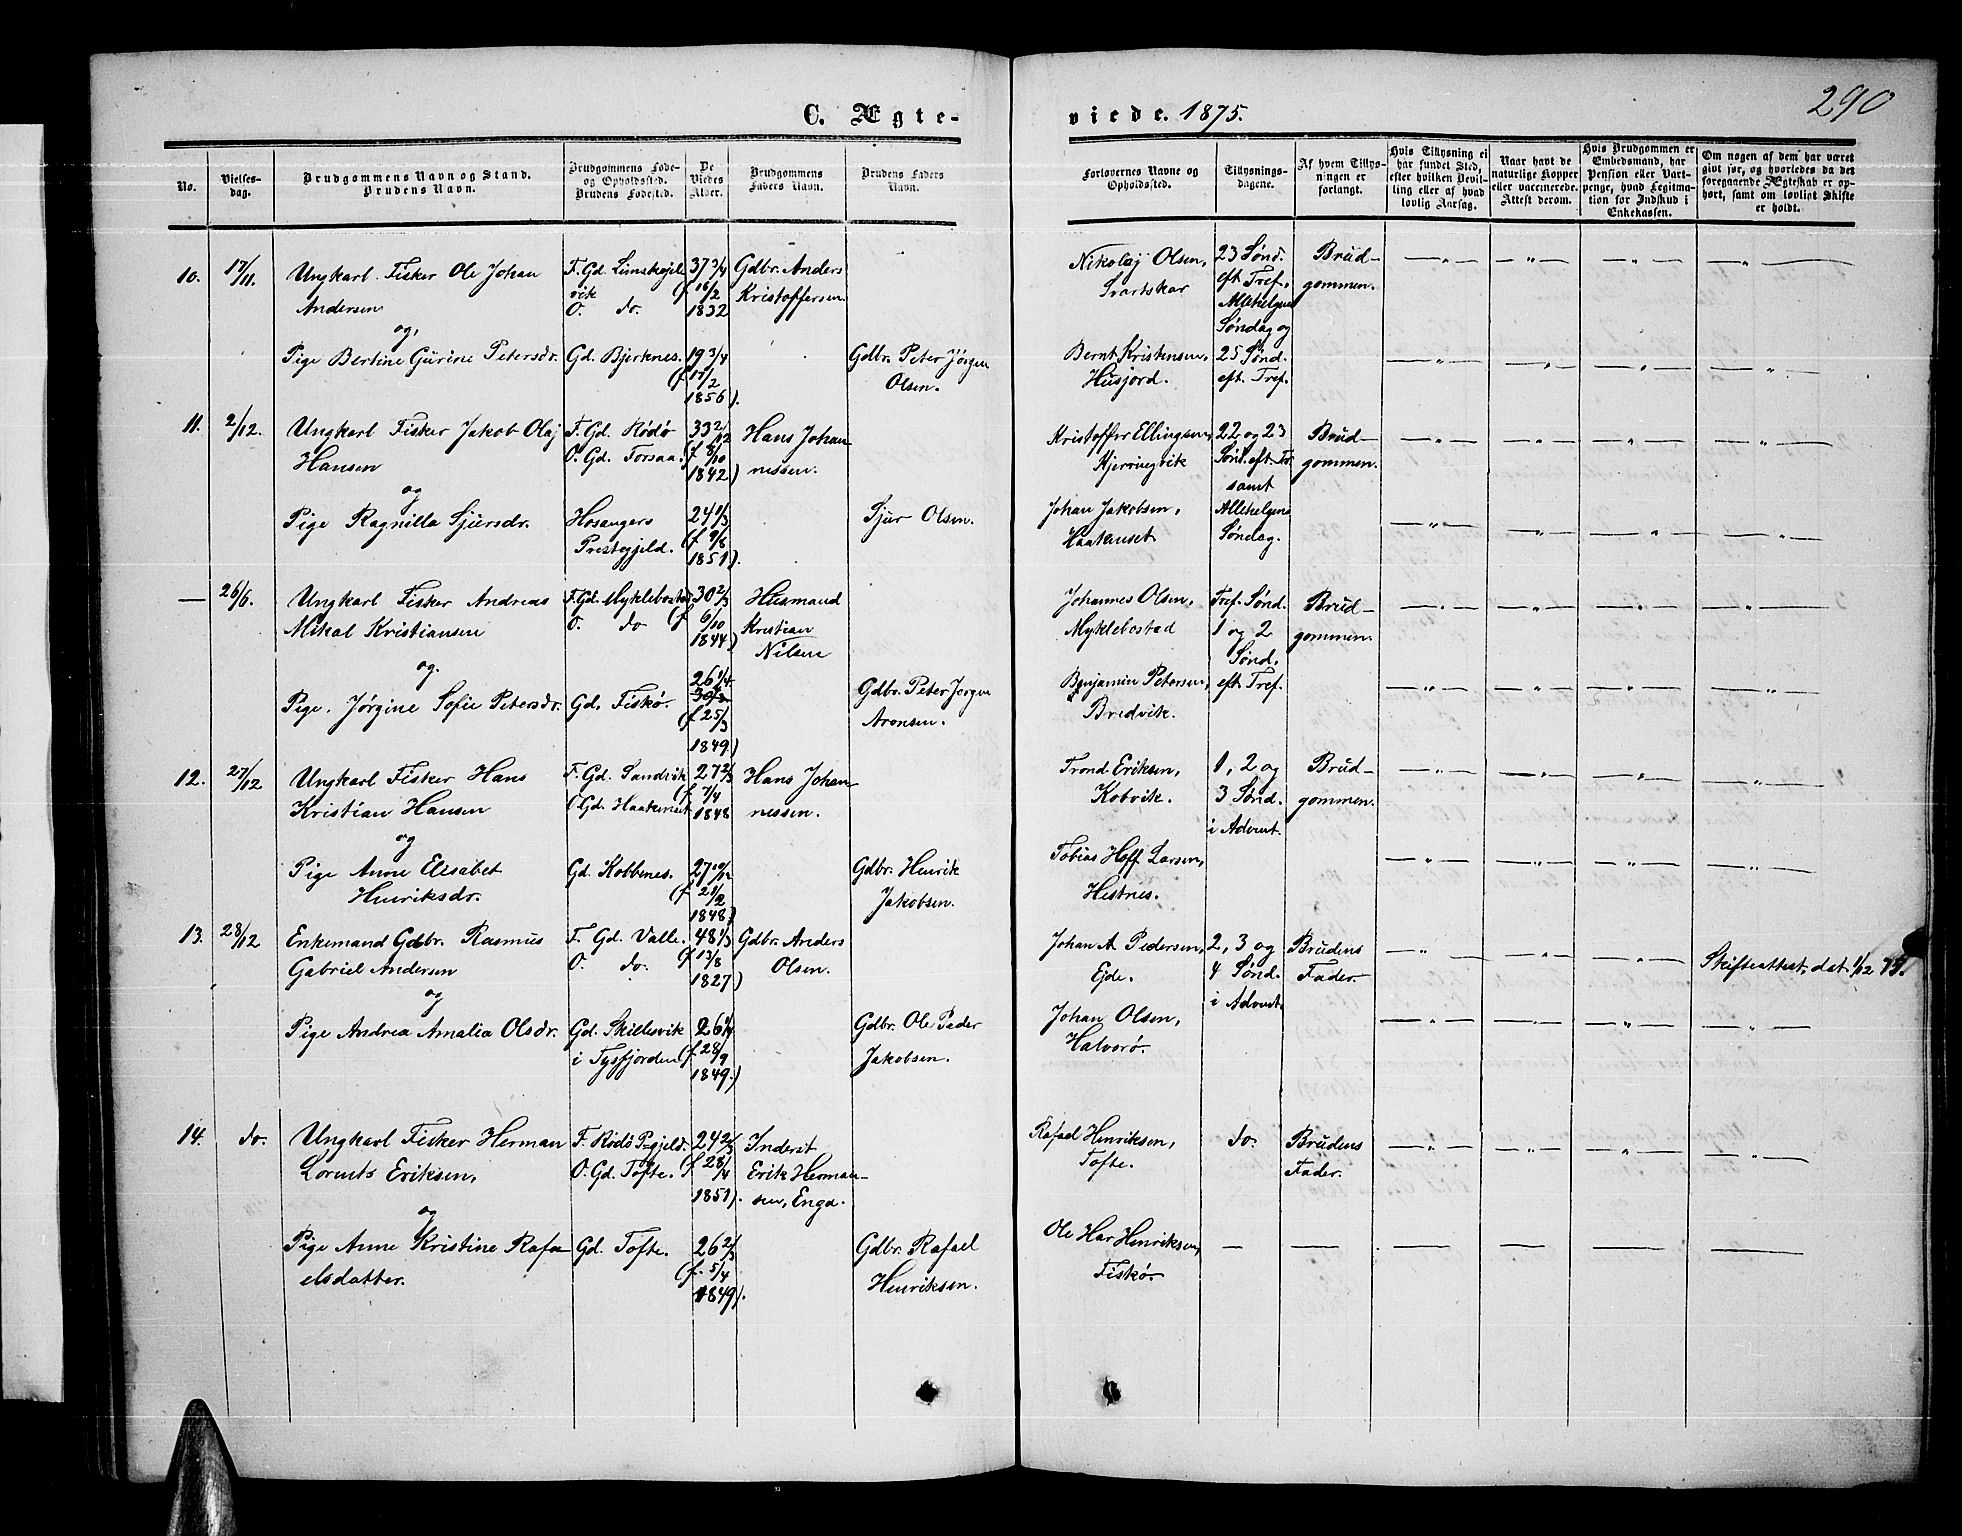 290
C. Ægte-
viede. 1875.
No.
Vielses-
dag.
Brudgommens Navn og Stand.
Brudens Navn.
Brudgommens Føde-
og Opholdssted.
Brudens Fødested.
De
Viedes
Alder.
Brudgommens
Faders Navn.
Brudens Faders
Navn.
Forlovernes Navne og
Opholdssted.
Tillysnings-
dagene.
Af hvem Tillys-
ningen er
forlangt.
Hvis Tillysning ei
har fundet Sted,
efter hvilken Bevil-
ling eller af hvad
lovlig Aarsag.
Naar havt de
naturlige Kopper
eller vaccinerede.
Attest derom.
Hvis Brudgommen er
Embedsmand, har
Pension eller Vart-
penge, hvad Legitima-
tion for Indskud i
Enkekassen.
Om nogen af dem har været
givt før, og hvorledes da det
foregaaende Ægteskab er op-
hørt, samt om lovligt Skifte
er holdt.
10. 17/11. Ungkarl Fisker Ole Johan
Andersen
F. Gd.
vik
O. do.
37 3/4
(f 16/2
1832
Gdbr. Anders
Kristoffersen
Nikolaj Olsen,
Svartskar
23 Sønd.
eft Tref,
Allehelgens
Søndag og
25 Sønd.
eft. Tref.
Brud-
gommen.
og,
Pige Bertine Gurine Petersdr.
Gd. Bjerknes.
19 3/4
(f 17/2
1856).
Gdbr. Peter Jørgen
Olsen.
Bernt Kristensen,
Husjord.
11. 2/12. Ungkarl Fisker Jakob Olaj
Hansen
F. Gd. Rödö
O. Gd. Forsaa.
33 2/12
(f 8/10
1842)
Hans Johan-
nessen.
Kristoffer Ellingsen,
Kjerringvik
22 og 23
Sønd. eft. Tr.
samt
Allehelgens
Søndag.
Brud-
gommen.
og
Pige Ragnilla Sjursdr.
Hosangers
Prestegjeld.
24 1/3
(f 9/8
1851).
Sjur Olsen.
Johan Jakobsen,
Haakenset
— 26/6. Ungkarl Fisker Andreas
Mikal Kristiansen
F. Gd. Myklebostad
O. do
30 2/3
(f 6/10
1844)
Husmand
Kristian
Nilsen
Johannes Olsen,
Myklebostad
Tref. Sønd.
1 og 2
Sønd.
eft. Tref.
Brud-
gommen.
og.
Pige. Jørgine Sofie Petersdr.
Gd. Fiskø.
26 1/4
30 2/3
(f 25/3
1849)
Gdbr. Peter Jørgen
Aronsen.
Benjamin Petersen,
Bredvik.
12. 27/12 Ungkarl Fisker Hans
Kristian Hansen
F. Gd. Sandvik
O. Gd. Haakenset
27 2/3
(f 7/4
1848
Hans Johan-
nessen.
Trond Eriksen,
Kobvik.
1, 2 og
3 Sønd.
i Advent.
Brud-
gommen.
og
Pige Anne Elisabet
Henriksdr.
Gd. Kobbenes.
27 10/12
(f. 21/2
1848)
Gdbr. Henrik
Jakobsen.
Tobias Hoff Larsen,
Hestnes.
13. 28/12 Enkemand Gdbr. Rasmus
Gabriel Andersen
F. Gd. Valle.
O. do.
48 1/3
(f 13/8
1827)
Gdbr. Anders
Olsen.
Johan A Pedersen,
Ejde.
2, 3 og
4 Sønd.
i Advent.
Brudens
Fader.
Skifteattest, dat. 1/12 75.
og
Pige Andrea Amalia Olsdr.
Gd. Skillesvik
i Tysfjorden
26 1/4
(f. 28/9
1849.)
Gdbr. Ole Peder
Jakobsen.
Johan Olsen,
Halvorø.
14. do. Ungkarl Fisker Herman
Lorents Eriksen,
F. Rödö P-gjeld.
O. Gd. Tofte.
24 2/3
(f 28/4
1851).
Inderst
Erik Herman-
sen, Enga.
Rafael Henriksen,
Tofte.
do.
Brudens
Fader.
og
Pige Anne Kristine Rafa-
elsdatter.
Gd. Tofte.
26 2/3
(f. 5/4
1849).
Gdbr. Rafael
Henriksen.
Ole Har Henriksen,
Fiskø.